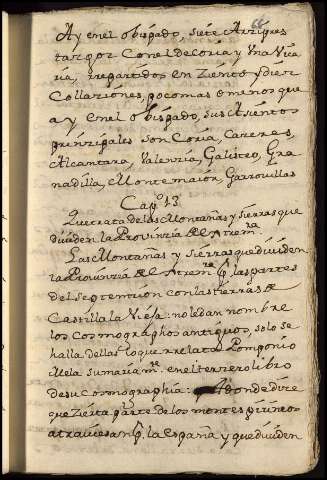 Ay en el obispado, siete Arzipres
tazgos Con el de Coria y Vna Vica
ria, repartidos en Ziento y diez
Collaziones, poco mas o menos que
ay en el obispado, sus Asientos
prinzipales son Coria, Cazeres,
Alcantara, Valenzia, Galisteo, Gra
nadilla, Montemaior, Garrouillas
Capº 13
Que trata de las Montañas y sierras que
diuiden la Prouinzia de Estrem.ra
Las Montañas y sierras que diuiden
la Prouinzia de Estrem.ra q̃ las partes
del septentrion con las tierras de
Castilla la Vieja: no le dan nombre
los cosmographos antiguos, solo se
halla dellas lo que rrelata Pomponio
Mela sumariam.te en el terzero libro
de su cosmographia: Adonde dize
que Zierta parte de los montes pirineos
atrauiesan q̃ la España y que diuiden